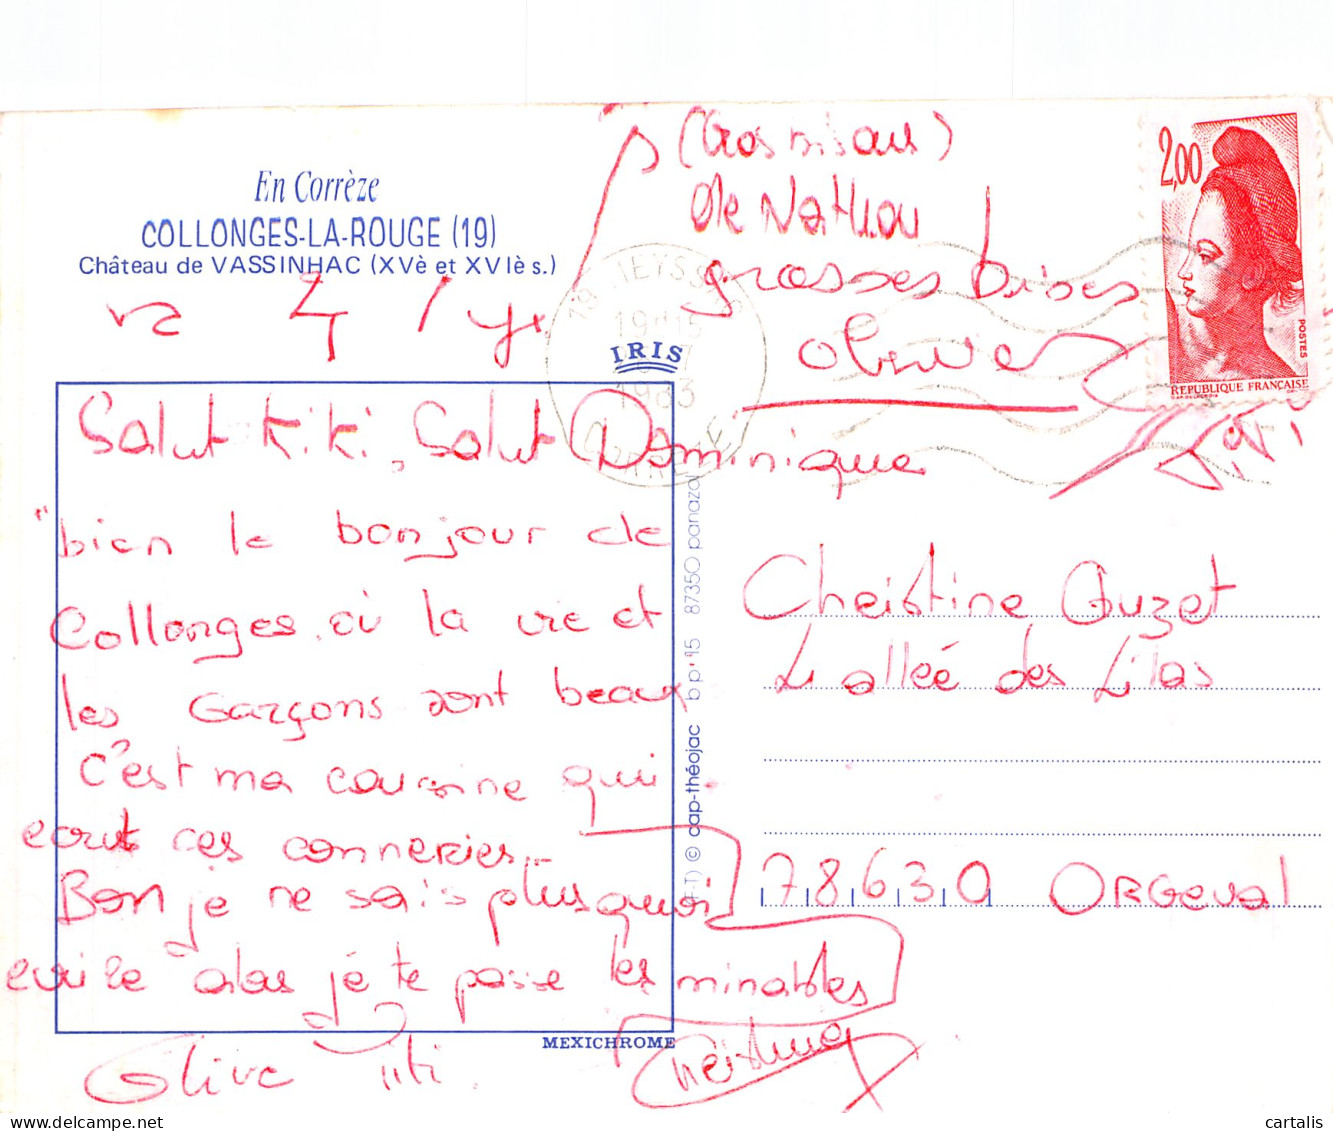 En Corrèze
COLLONGES-LA-ROUGE (19)
Château de VASSINHAC (XVè et XVIè s.)
(Gros bisous)
de Nathou
grosses bises
Olivier
2,00
POSTES
REPUBLIQUE FRANÇAISE
19H15
1983
CORREZE
IRIS
Salut Kiki, Salut Dominique
"bien le bonjour de
Collonges où la vie et
les Garçons sont beaux
C'est ma cousine qui
ecrit ces conneries...
Bon je ne sais plus quoi
ecrire alors je te passe les minables
Olive Titi
Christine
MEXICHROME
cap-théojac bp 15 87350 panazol
Christine Auzet
L allée des Lilas
78630 ORGEval
cartalis
delcampe.net